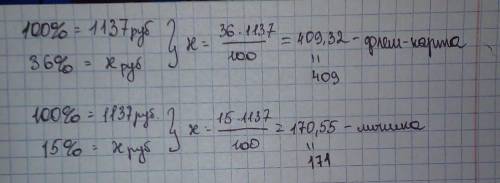 100% = 1137 руб
36% = х руб } х = 36·1137/100 = 409,32 - флеш-карта
=
409
100% = 1137 руб.
15% = х руб } х = 15·1137/100 = 170,55 - мышка
=
171